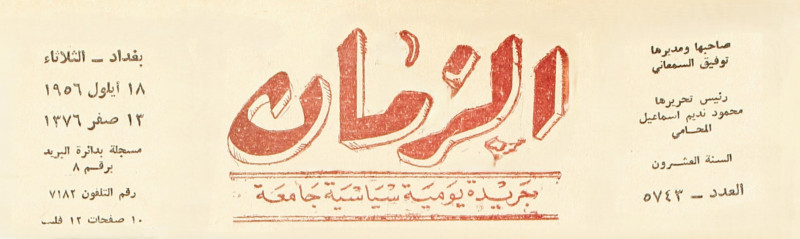 صاحبها ومديرها
توفيق السمعاني
رئيس تحريرها
محمود نديم اسماعيل
المحامي
السنة العشرون
العدد – ٥٧٤٣
الزمان
جريدة يومية سياسية جامعة
بغداد – الثلاثاء
١٨ أيلول ١٩٥٦
١٣ صفر ١٣٧٦
مسجلة بدائرة البريد
برقم ٨
رقم التلفون ٧١٨٢
١٠ صفحات ١٢ فلس